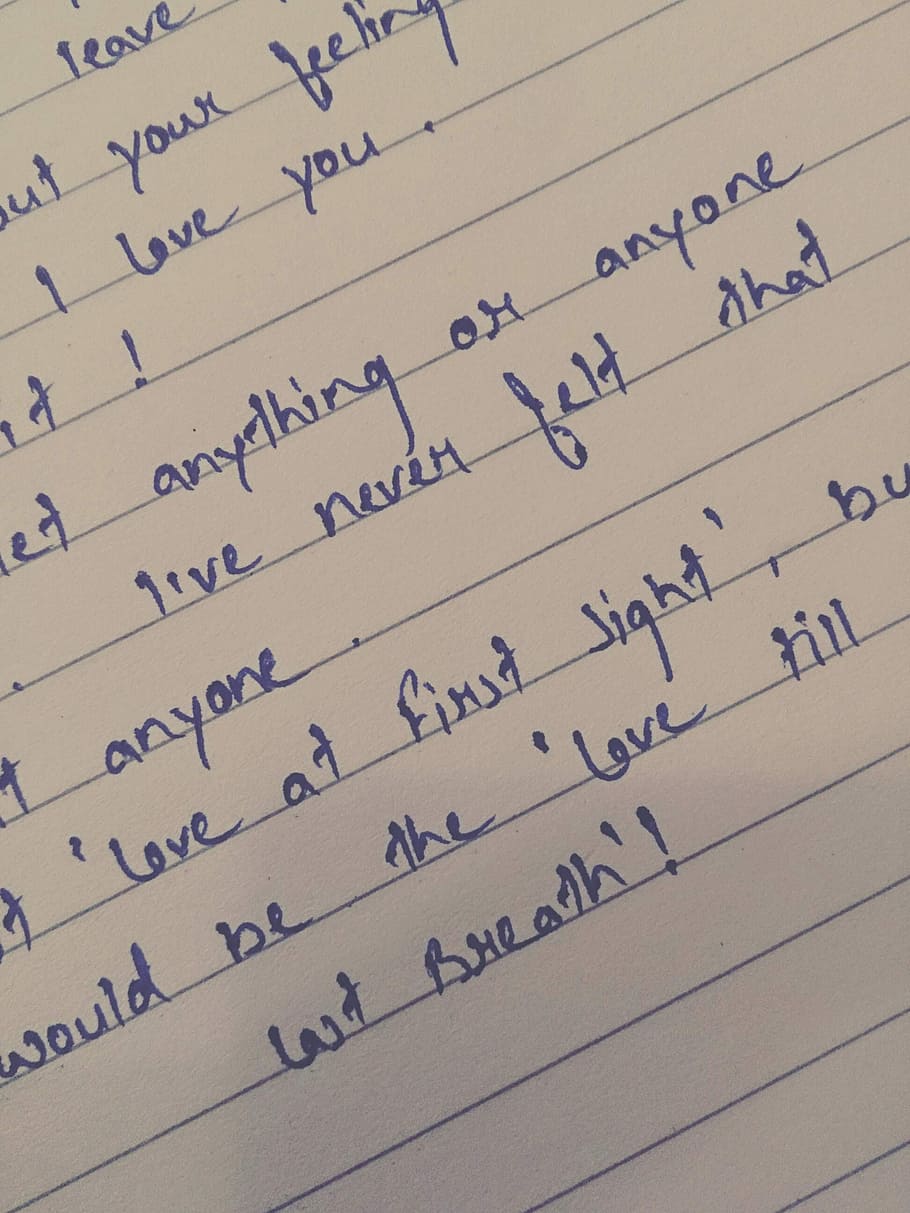 leave
out your feeling
I love you .
it !
let anything or anyone
. live never felt that
t anyone .
t 'love at first sight', bu
would be the 'love till
last Breath'!